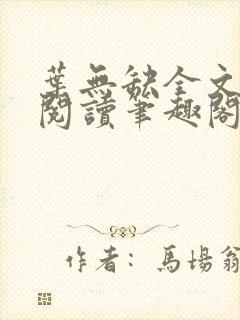 葉無缺全文
閱讀筆趣閣
作者：馬場翁